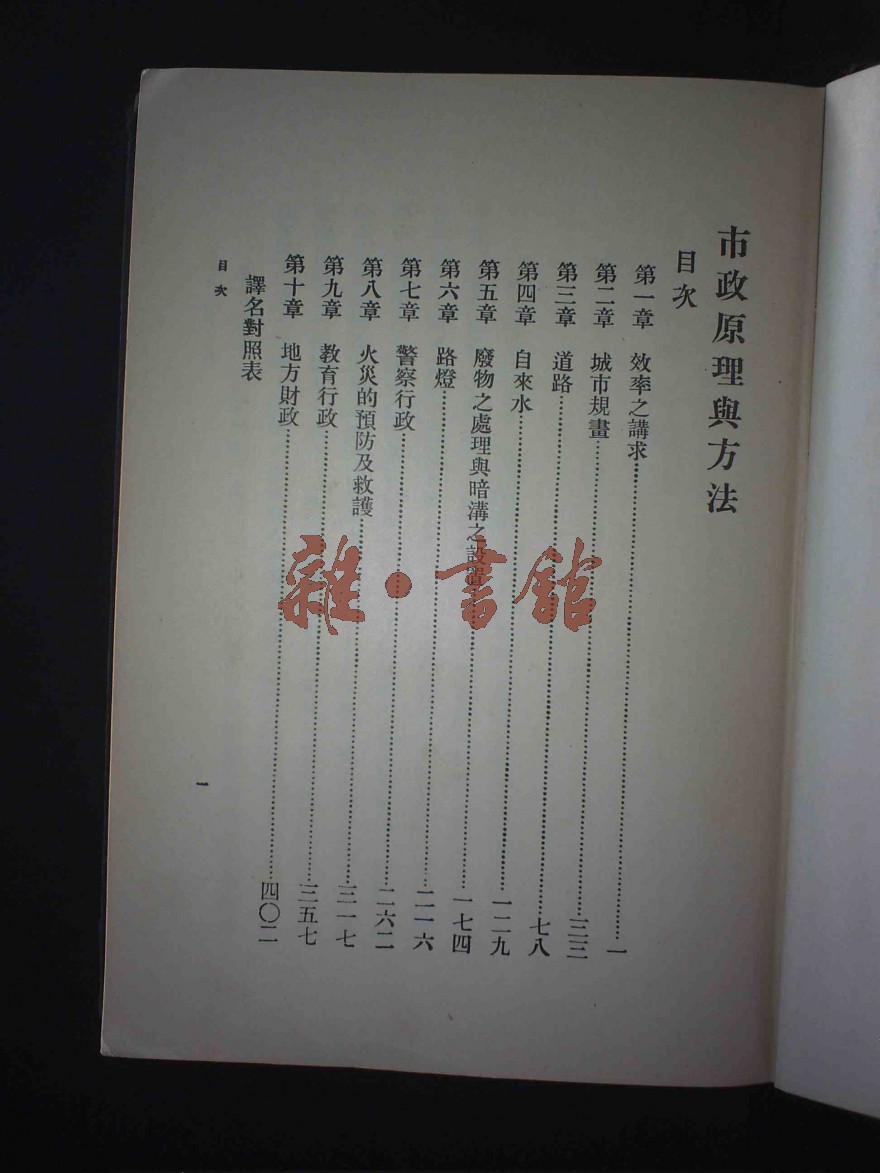 市政原理與方法
目次
第一章 效率之講求……一
第二章 城市規畫……三三
第三章 道路……七八
第四章 自來水……一二九
第五章 廢物之處理與暗溝之設置……一七四
第六章 路燈……二一六
第七章 警察行政……二六二
第八章 火災的預防及救護……三一七
第九章 教育行政……三五七
第十章 地方財政……四〇二
譯名對照表
目次
一
雜·書館